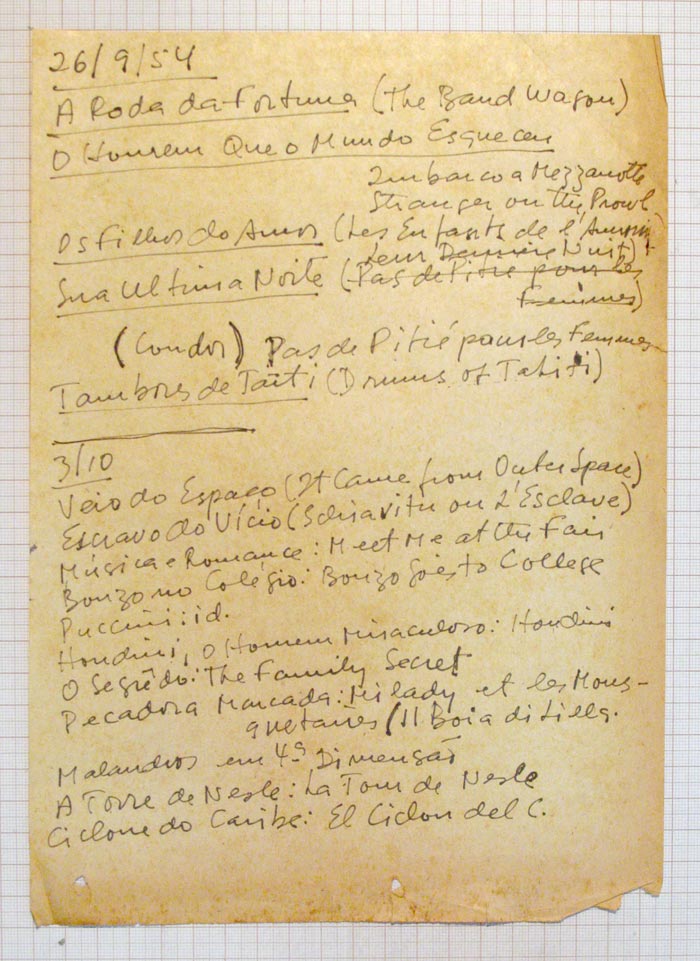 26/9/54
A Roda da Fortuna (The Band Wagon)
O Homem Que o Mundo Esqueceu
Imbarco a Mezzanotte
Stranger on the Prowl
Os Filhos do Amor (Les Enfants de l'Amour)
Leur Dernière Nuit)
Sua Ultima Noite (Pas de Pitié pour les
Femmes)
(Condor) Pas de Pitié pour les Femmes
Tambores de Taïti (Drums of Tahiti)
3/10
Veio do Espaço (It Came from Outer Space)
Escravo do Vício (Schiavitù ou L'Esclave)
Música e Romance: Meet Me at the Fair
Bonzo no Colégio: Bonzo Goes to College
Puccini: id.
Houdini, O Homem Miraculoso: Houdini
O Segrêdo: The Family Secret
Pecadora Marcada: Milady et les Mous-
quetaires (Il Boia di Lilla.
Malandros em 4ª Dimensão
A Torre de Nesle: La Tour de Nesle
Ciclone do Caribe: El Ciclon del C.